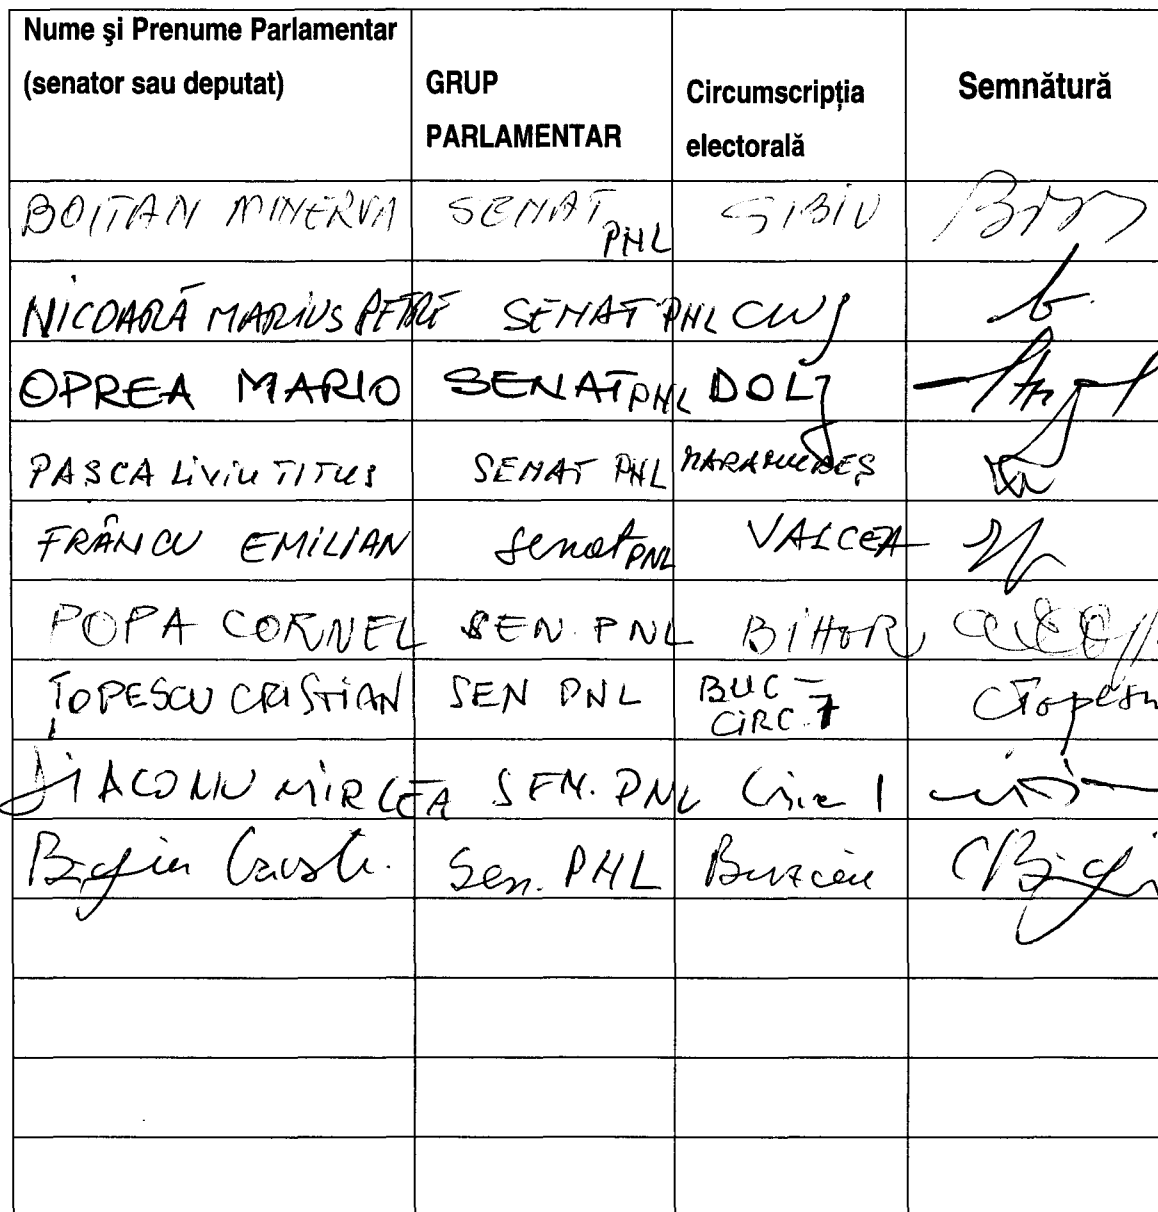 Nume și Prenume Parlamentar (senator sau deputat) GRUP PARLAMENTAR Circumscripția electorală Semnătură
BOITAN MINERVA SENAT PNL SIBIU
NICOARĂ MARIUS PETRE SENAT PNL CLUJ
OPREA MARIO SENAT PNL DOLJ
PASCA LIVIU TITUS SENAT PNL MARAMUREȘ
FRÂNCU EMILIAN Senat PNL VALCEA
POPA CORNEL SEN. PNL BIHOR
ȚOPESCU CRISTIAN SEN PNL BUC - CIRC. 7 CȚopescu
DIACONU MIRCEA SEN. PNL Circ 1
Sen. PNL